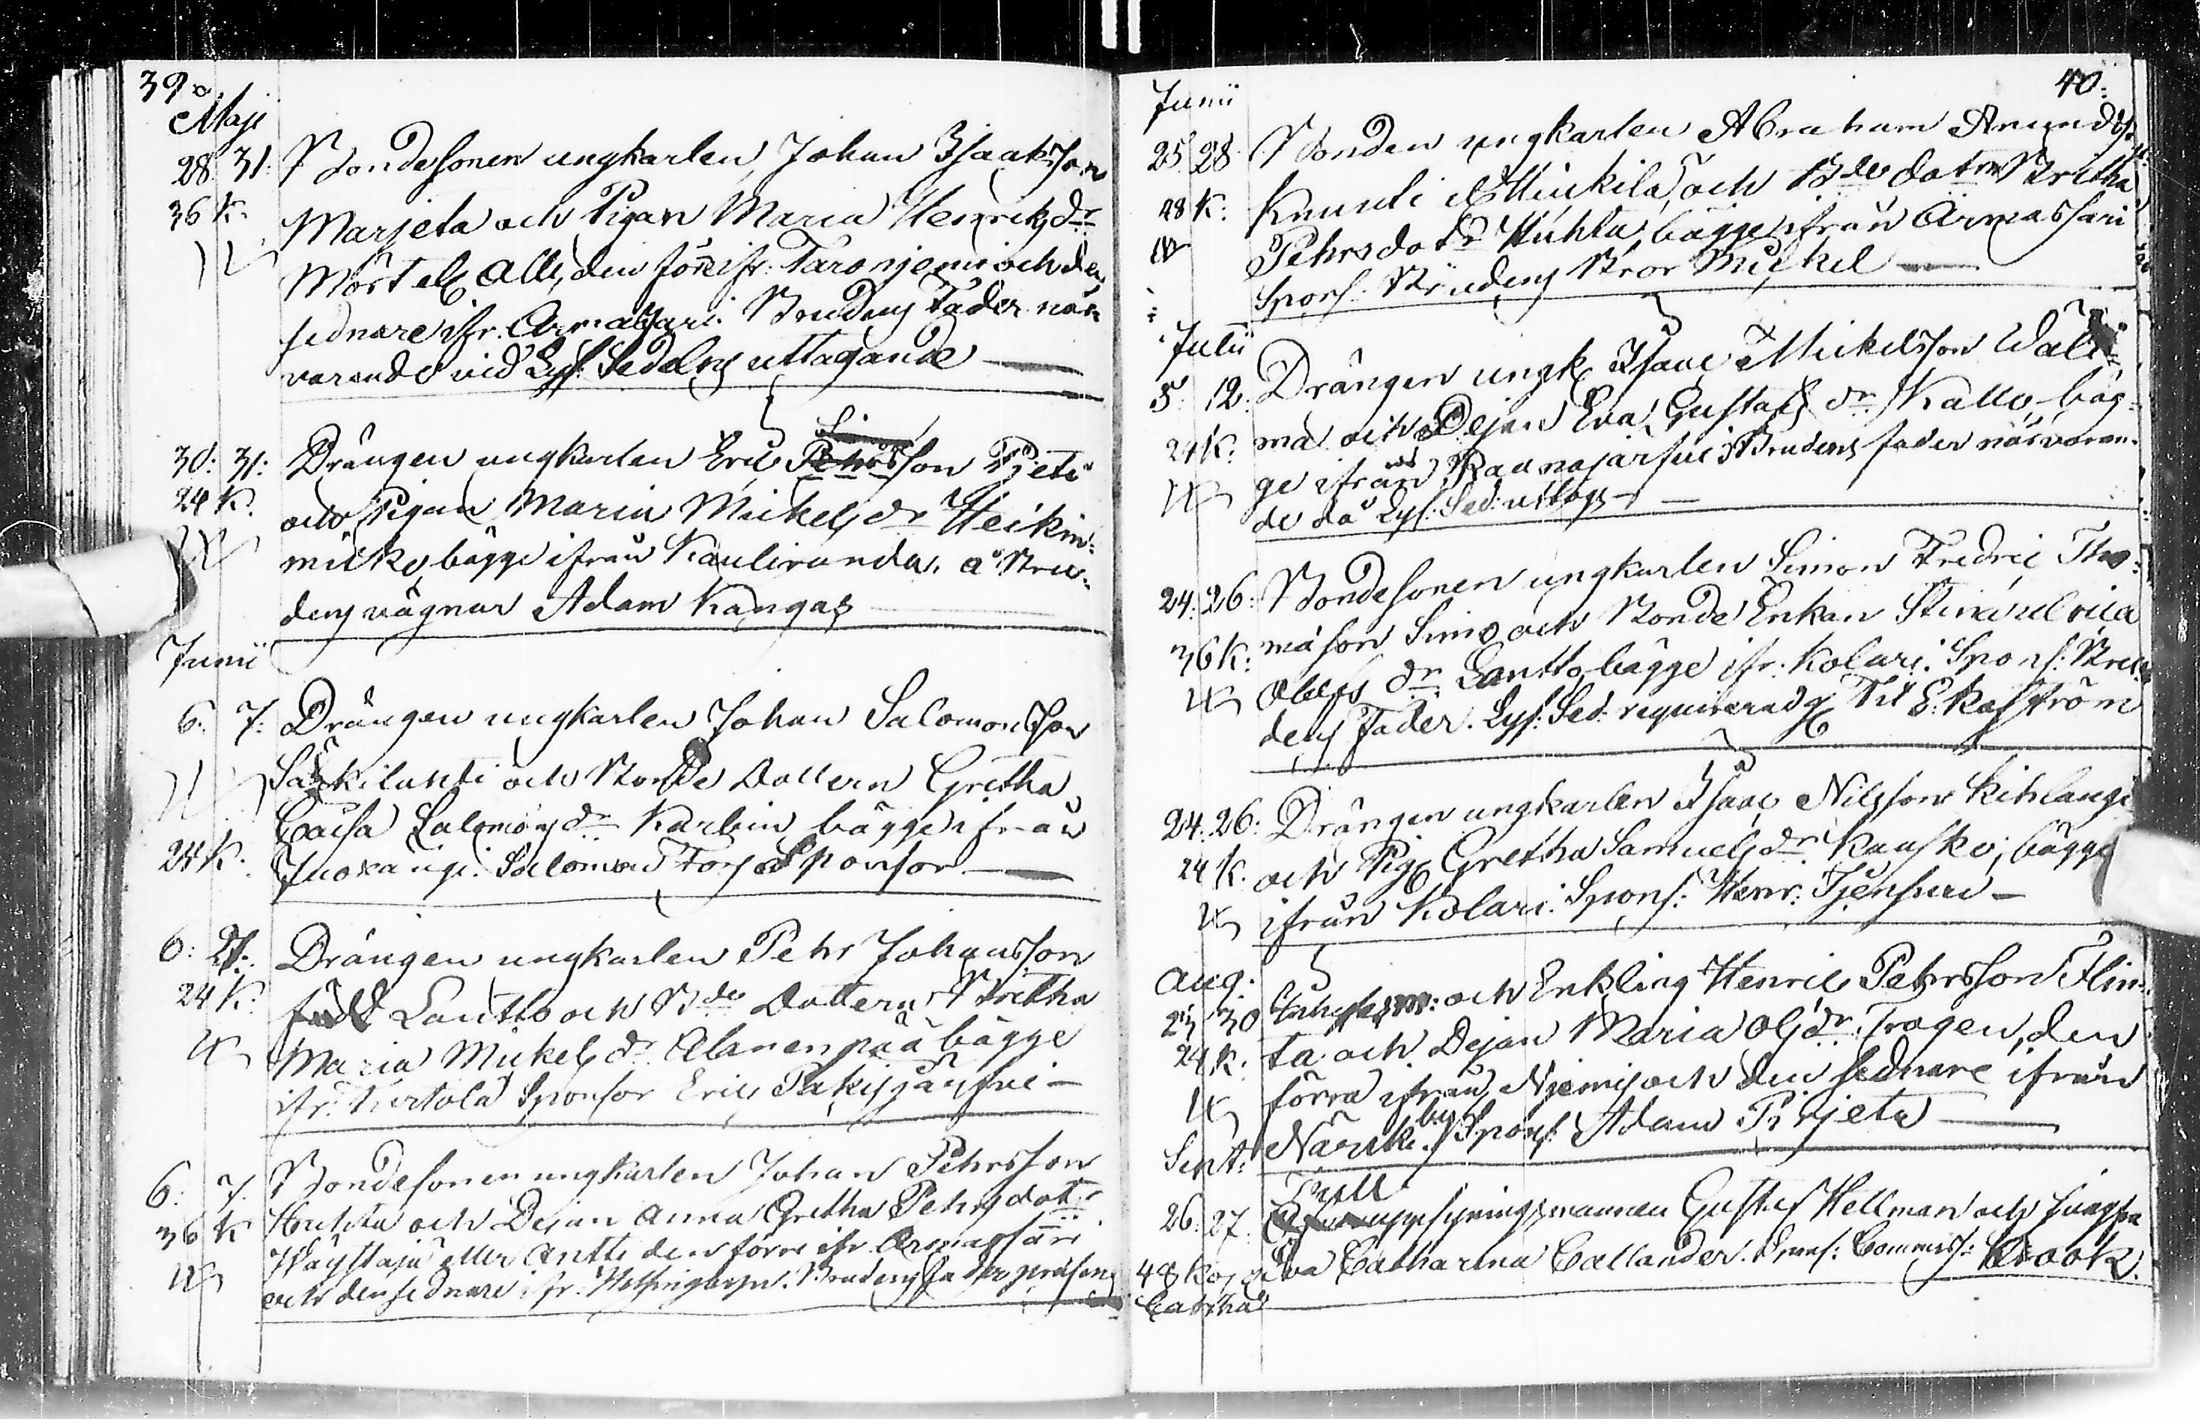 39.
Maji
28. 31. Bondesonen ungkarlen Johan Isaaksson
36 K. Marjeta och Pigan Maria Henriksdr
Mört alls Alli, den förre ifr. Taronjemi och den
sednare ifr. Armasjari. Brudens Fader när-
varande vid Lys. Sedelns uttagande
30. 31. Drängen ungkarlen Eric Simons Pehrsson Pjeti
24 K. och Pigan Maria Mickelsdr Heikin-
mikko, bägge ifrån Kauliranda. å Bru-
dens vägnar Adam Kangas
Junii
6. 7. Drängen ungkarlen Johan Salomonsson
Särkilahti och Bonde Dottern Gretha
Caisa Salomonsdr Karbin bägge ifrån
24 K. Juoxangi. Salomon Fors Sponsor
6. 21. Drängen ungkarlen Pehr Johansson
24 K. Lantto och Bde Dottern Britha
Maria Mickelsdr Alanenpää bägge
ifr. Kertola Sponsor Eric Pakisjärfvi
6. 7. Bondesonen ungkarlen Johan Pehrsson
36 K Huhta och Dejan Anna Gretha Pehrsdotr
Waystaja eller Antti den förre ifr. Armassari
och den sednare ifr. Helsingebyn. Brudens fader præsens
40.
Junii
25 28 Bonden ungkarlen Abraham Amundss.
48 K. Knuuti el. Mickila, och Bde dotrn Britha
Pehrsdotr Huhta, bägge ifrån Armassari
Spons. Brudens Bror Mickel
Julii
5. 12. Drängen ungk. Isaac Mickelsson
24 K. ma och Dejan Eva Gustafsdr Kallo, bäg-
ge ifrån Raunajärfvi Brudens fader närvaran-
de då Lys. Sed. uttogs
24. 26. Bondesonen ungkarlen Simon Fredric Tho-
36 K. mason Simo och Bonde Enkan Stina Ulrica
Olofsdr Lantto, bägge ifr. Kolari. Spons. Bru-
dens Fader. Lys. Sed. requirerad Til E. Kafström
24. 26. Drängen ungkarlen Isaac Nilsson Kihlangi
24 K. och Pig. Gretha Samuelsdr Kaasko, bägge
ifrån Kolari. Spons. Henr. Tjensuu
Aug.
23 30 och Enkling Henric Pehrsson Flin-
24 K. ta och Dejan Maria Olsdr Trogen, den
förra ifrån Niemis och den sednare ifrån
Närike by Spons. Adam Pirjeta
Sept.
Tull
26. 27. uppsyningsmannen Gustaf Hellman och Jungfru
48 K Eva Catharina Callander. Spons. Commiss: Krook.